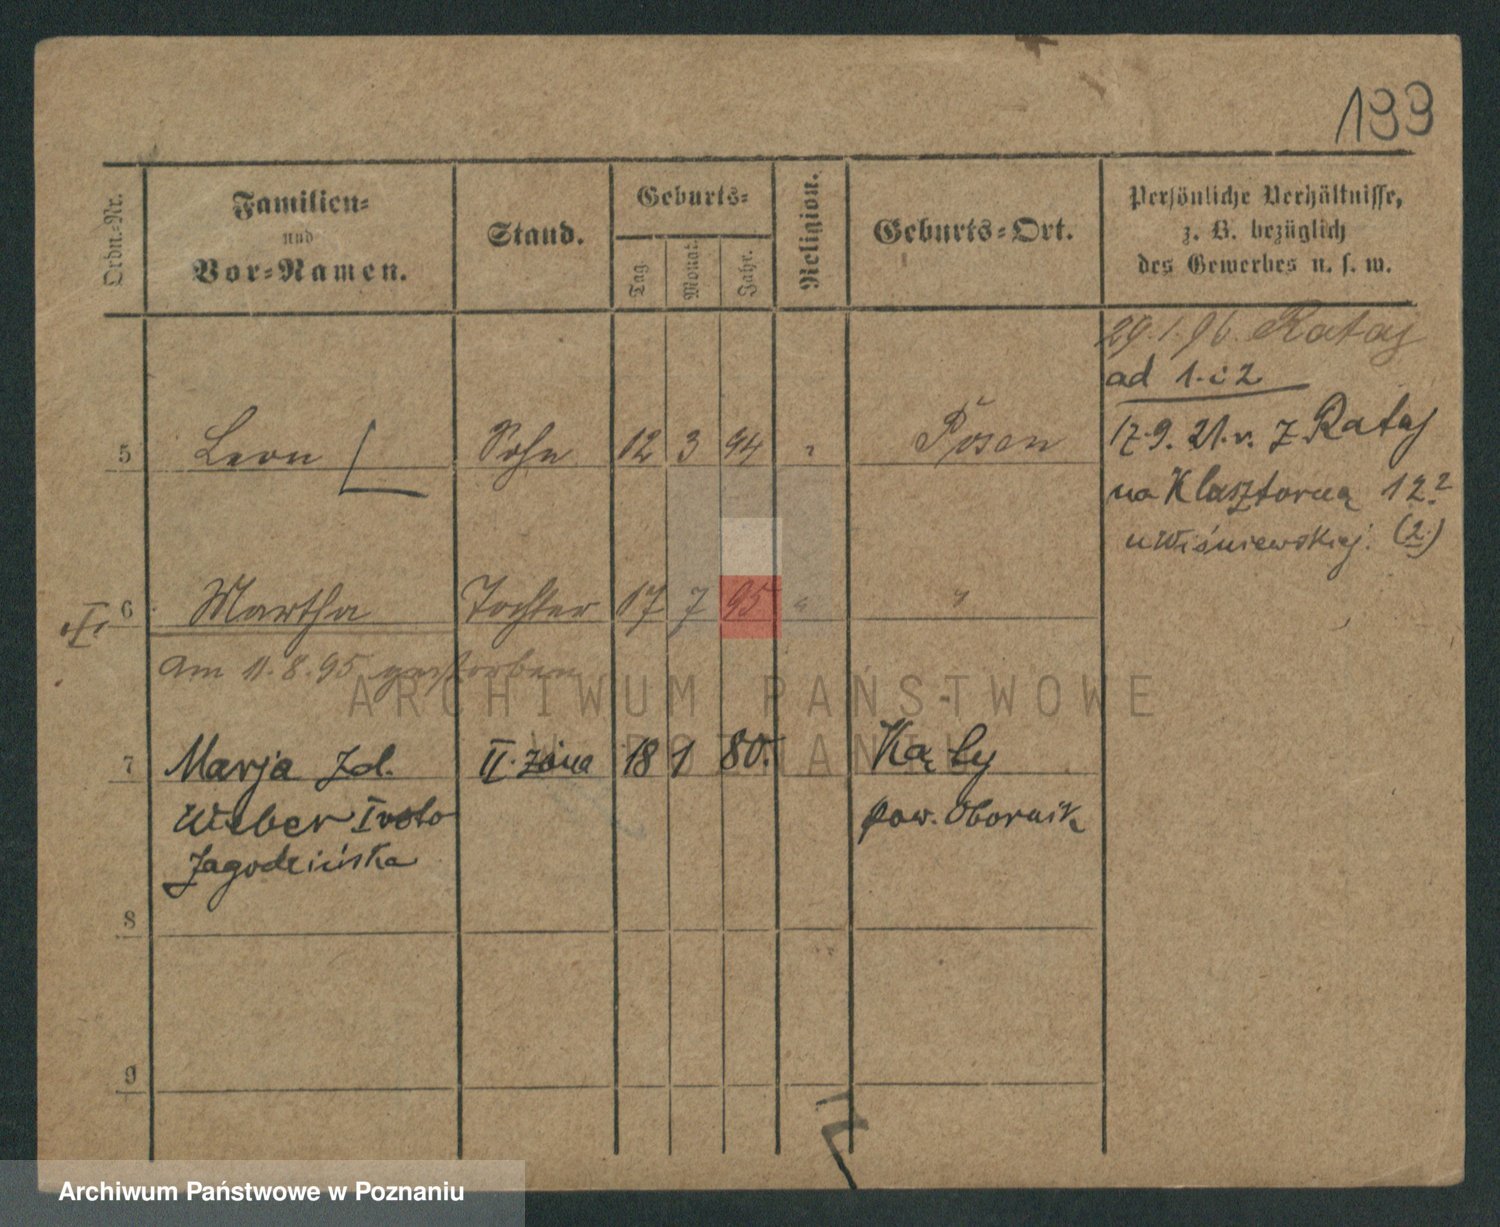 133
Ordn.-Nr.
Familien-
und
Vor-Namen.
Stand.
Geburts-
Tag.
Monat.
Jahr.
Religion.
Geburts-Ort.
Persönliche Verhältnisse,
z. B. bezüglich
des Gewerbes u. s. w.
29.1.96. Rataj
ad 1. i 2
5 Leon Sohn 12 3 94 " Posen
17.9. 21. v. Z Rataj
na Klasztorną 12
u Wiśniewskiej. (2.)
6 Martha Tochter 17 7 95 " "
am 11.8.95 gestorben
7 Marja Zd. II. żona 18 1 80.
Weber I voto pow. Obornik
Jagodzińska
8
9
ARCHIWUM PAŃSTWOWE
W POZNANIU
Archiwum Państwowe w Poznaniu